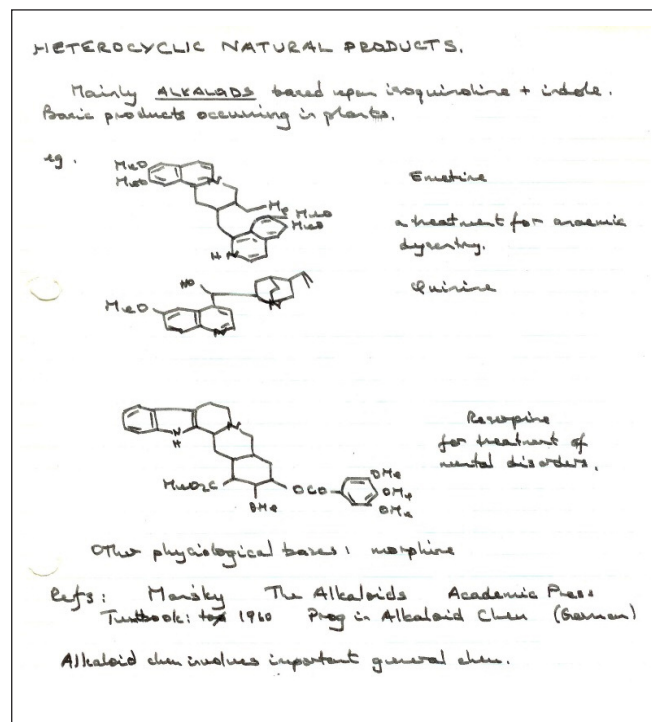 HETEROCYCLIC NATURAL PRODUCTS.
Mainly ALKALOIDS based upon isoquinoline + indole.
Basic products occurring in plants.
eg.
MeO
MeO
N
Me
MeO
MeO
H N
Emetine
a treatment for
dysentry.
HO
N
MeO
N
Quinine
N
H
N
MeO2C
OMe
OCO
OMe
OMe
OMe
Reserpine
for treatment of
mental disorders.
Other physiological bases: morphine
Refs: Mansky The Alkaloids Academic Press
Textbook: 1960 Prog in Alkaloid Chem (German)
Alkaloid chem involves important general chem.